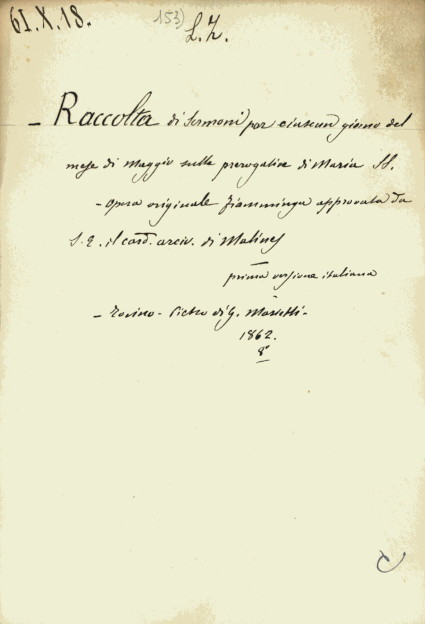 61.X.18.
153)
L.Z.
- Raccolta di Sermoni per ciascun giorno del
mese di Maggio sulle prerogative di Maria SS.
- opera originale fiamminga approvata da
S. E. il card. arciv. di Malines
prima versione italiana
- Torino - Pietro di G. Marietti -
1862.
8°